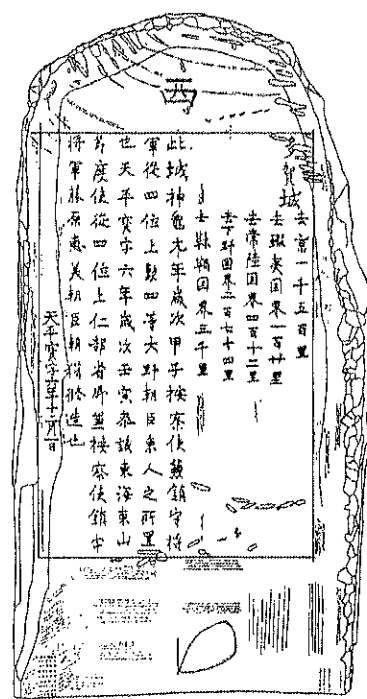 西
多賀城
去京一千五百里
去蝦夷国界一百廿里
去常陸国界四百十二里
去下野国界二百七十四里
去靺鞨国界三千里
此城神龜元年歲次甲子按察使兼鎮守將
軍從四位上勲四等大野朝臣東人之所置
也天平寶字六年歲次壬寅參議東海東山
節度使從四位上仁部省卿兼按察使鎮守
將軍藤原惠美朝臣朝獦修造也
天平寶字六年十二月一日